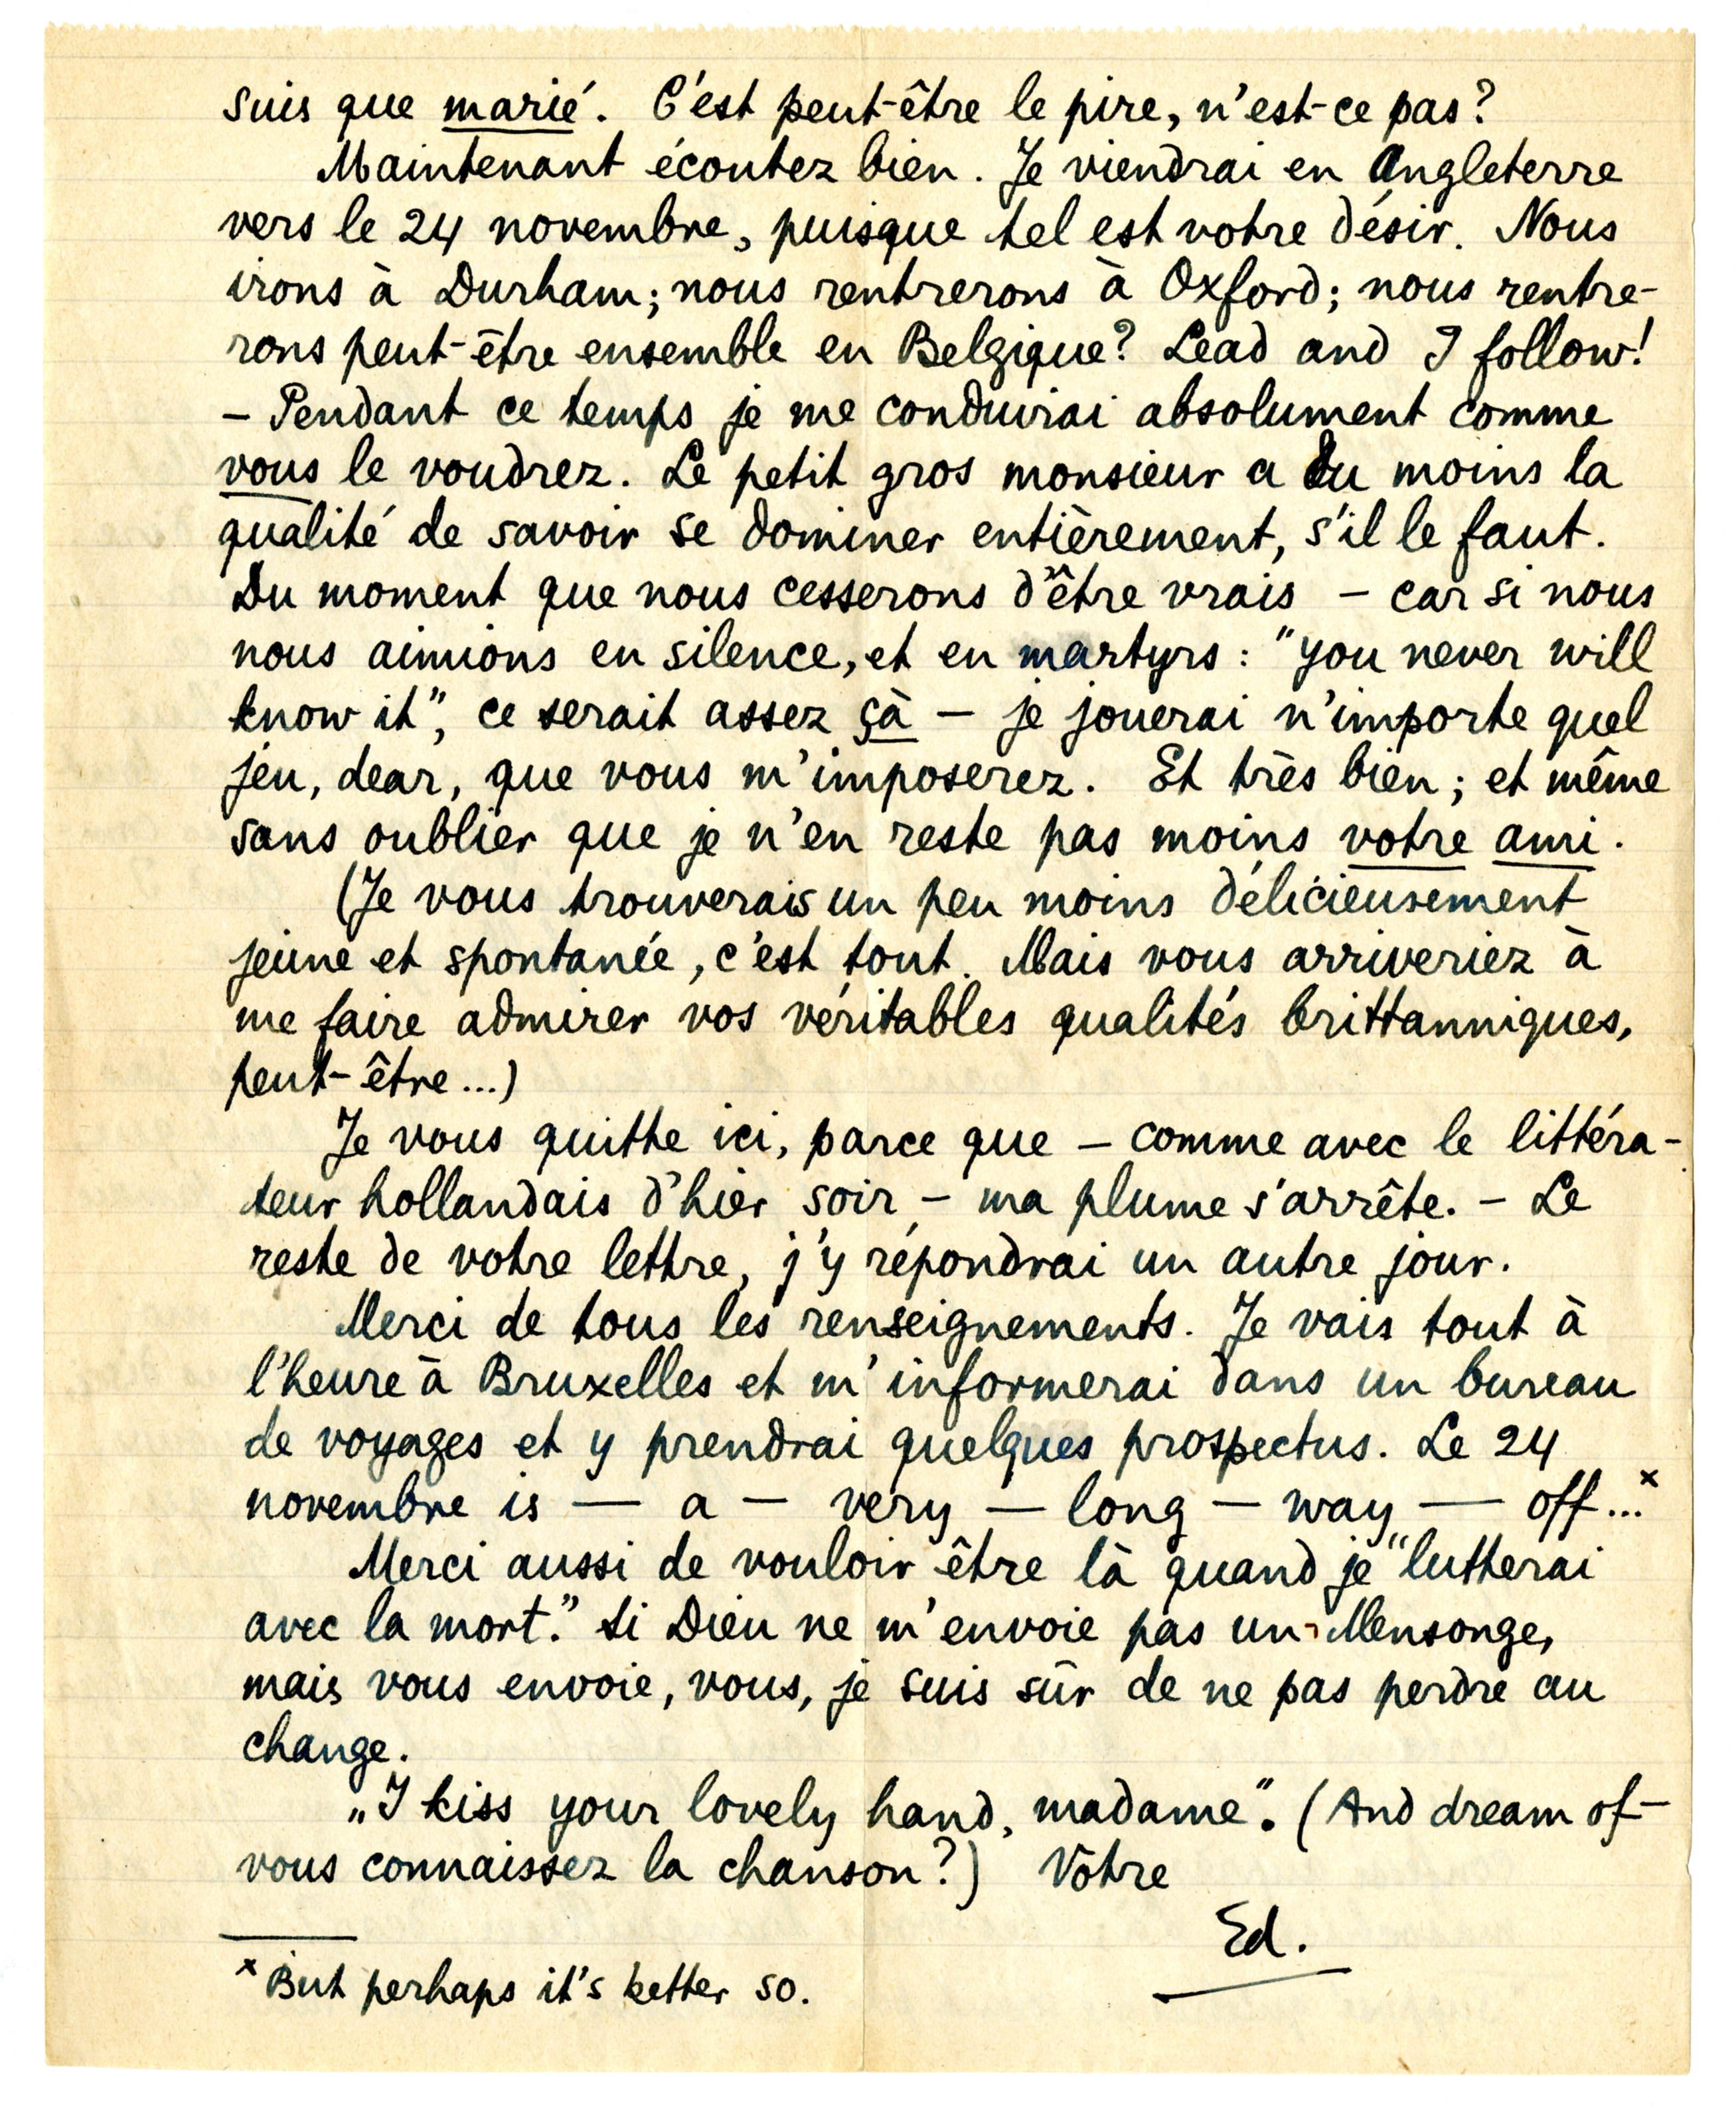 suis que marié. C'est peut-être le pire, n'est-ce pas?
Maintenant écoutez bien. Je viendrai en Angleterre
vers le 24 novembre, puisque tel est votre désir. Nous
irons à Durham; nous rentrerons à Oxford; nous rentre-
rons peut-être ensemble en Belgique? Lead and I follow!
– Pendant ce temps je me conduirai absolument comme
vous le voudrez. Le petit gros monsieur a du moins la
qualité de savoir se dominer entièrement, s'il le faut.
Du moment que nous cesserons d'être vrais – car si nous
nous aimions en silence, et en martyrs: "you never will
know it", ce serait assez çà – je jouerai n'importe quel
jeu, dear, que vous m'imposerez. Et très bien; et même
sans oublier que je n'en reste pas moins votre ami.
(Je vous trouverais un peu moins délicieusement
jeune et spontanée, c'est tout. Mais vous arriveriez à
me faire admirer vos véritables qualités brittanniques,
peut-être...)
Je vous quitte ici, parce que – comme avec le littéra-
teur hollandais d'hier soir – ma plume s'arrête. – Le
reste de votre lettre, j'y répondrai un autre jour.
Merci de tous les renseignements. Je vais tout à
l'heure à Bruxelles et m'informerai dans un bureau
de voyages et y prendrai quelques prospectus. Le 24
novembre is — a — very — long — way — off...x
Merci aussi de vouloir être là quand je "lutterai
avec la mort." Si Dieu ne m'envoie pas un Mensonge,
mais vous envoie, vous, je suis sûr de ne pas perdre au
change.
„I kiss your lovely hand, madame". (And dream of –
vous connaissez la chanson?) Vôtre
Ed.
x But perhaps it's better so.